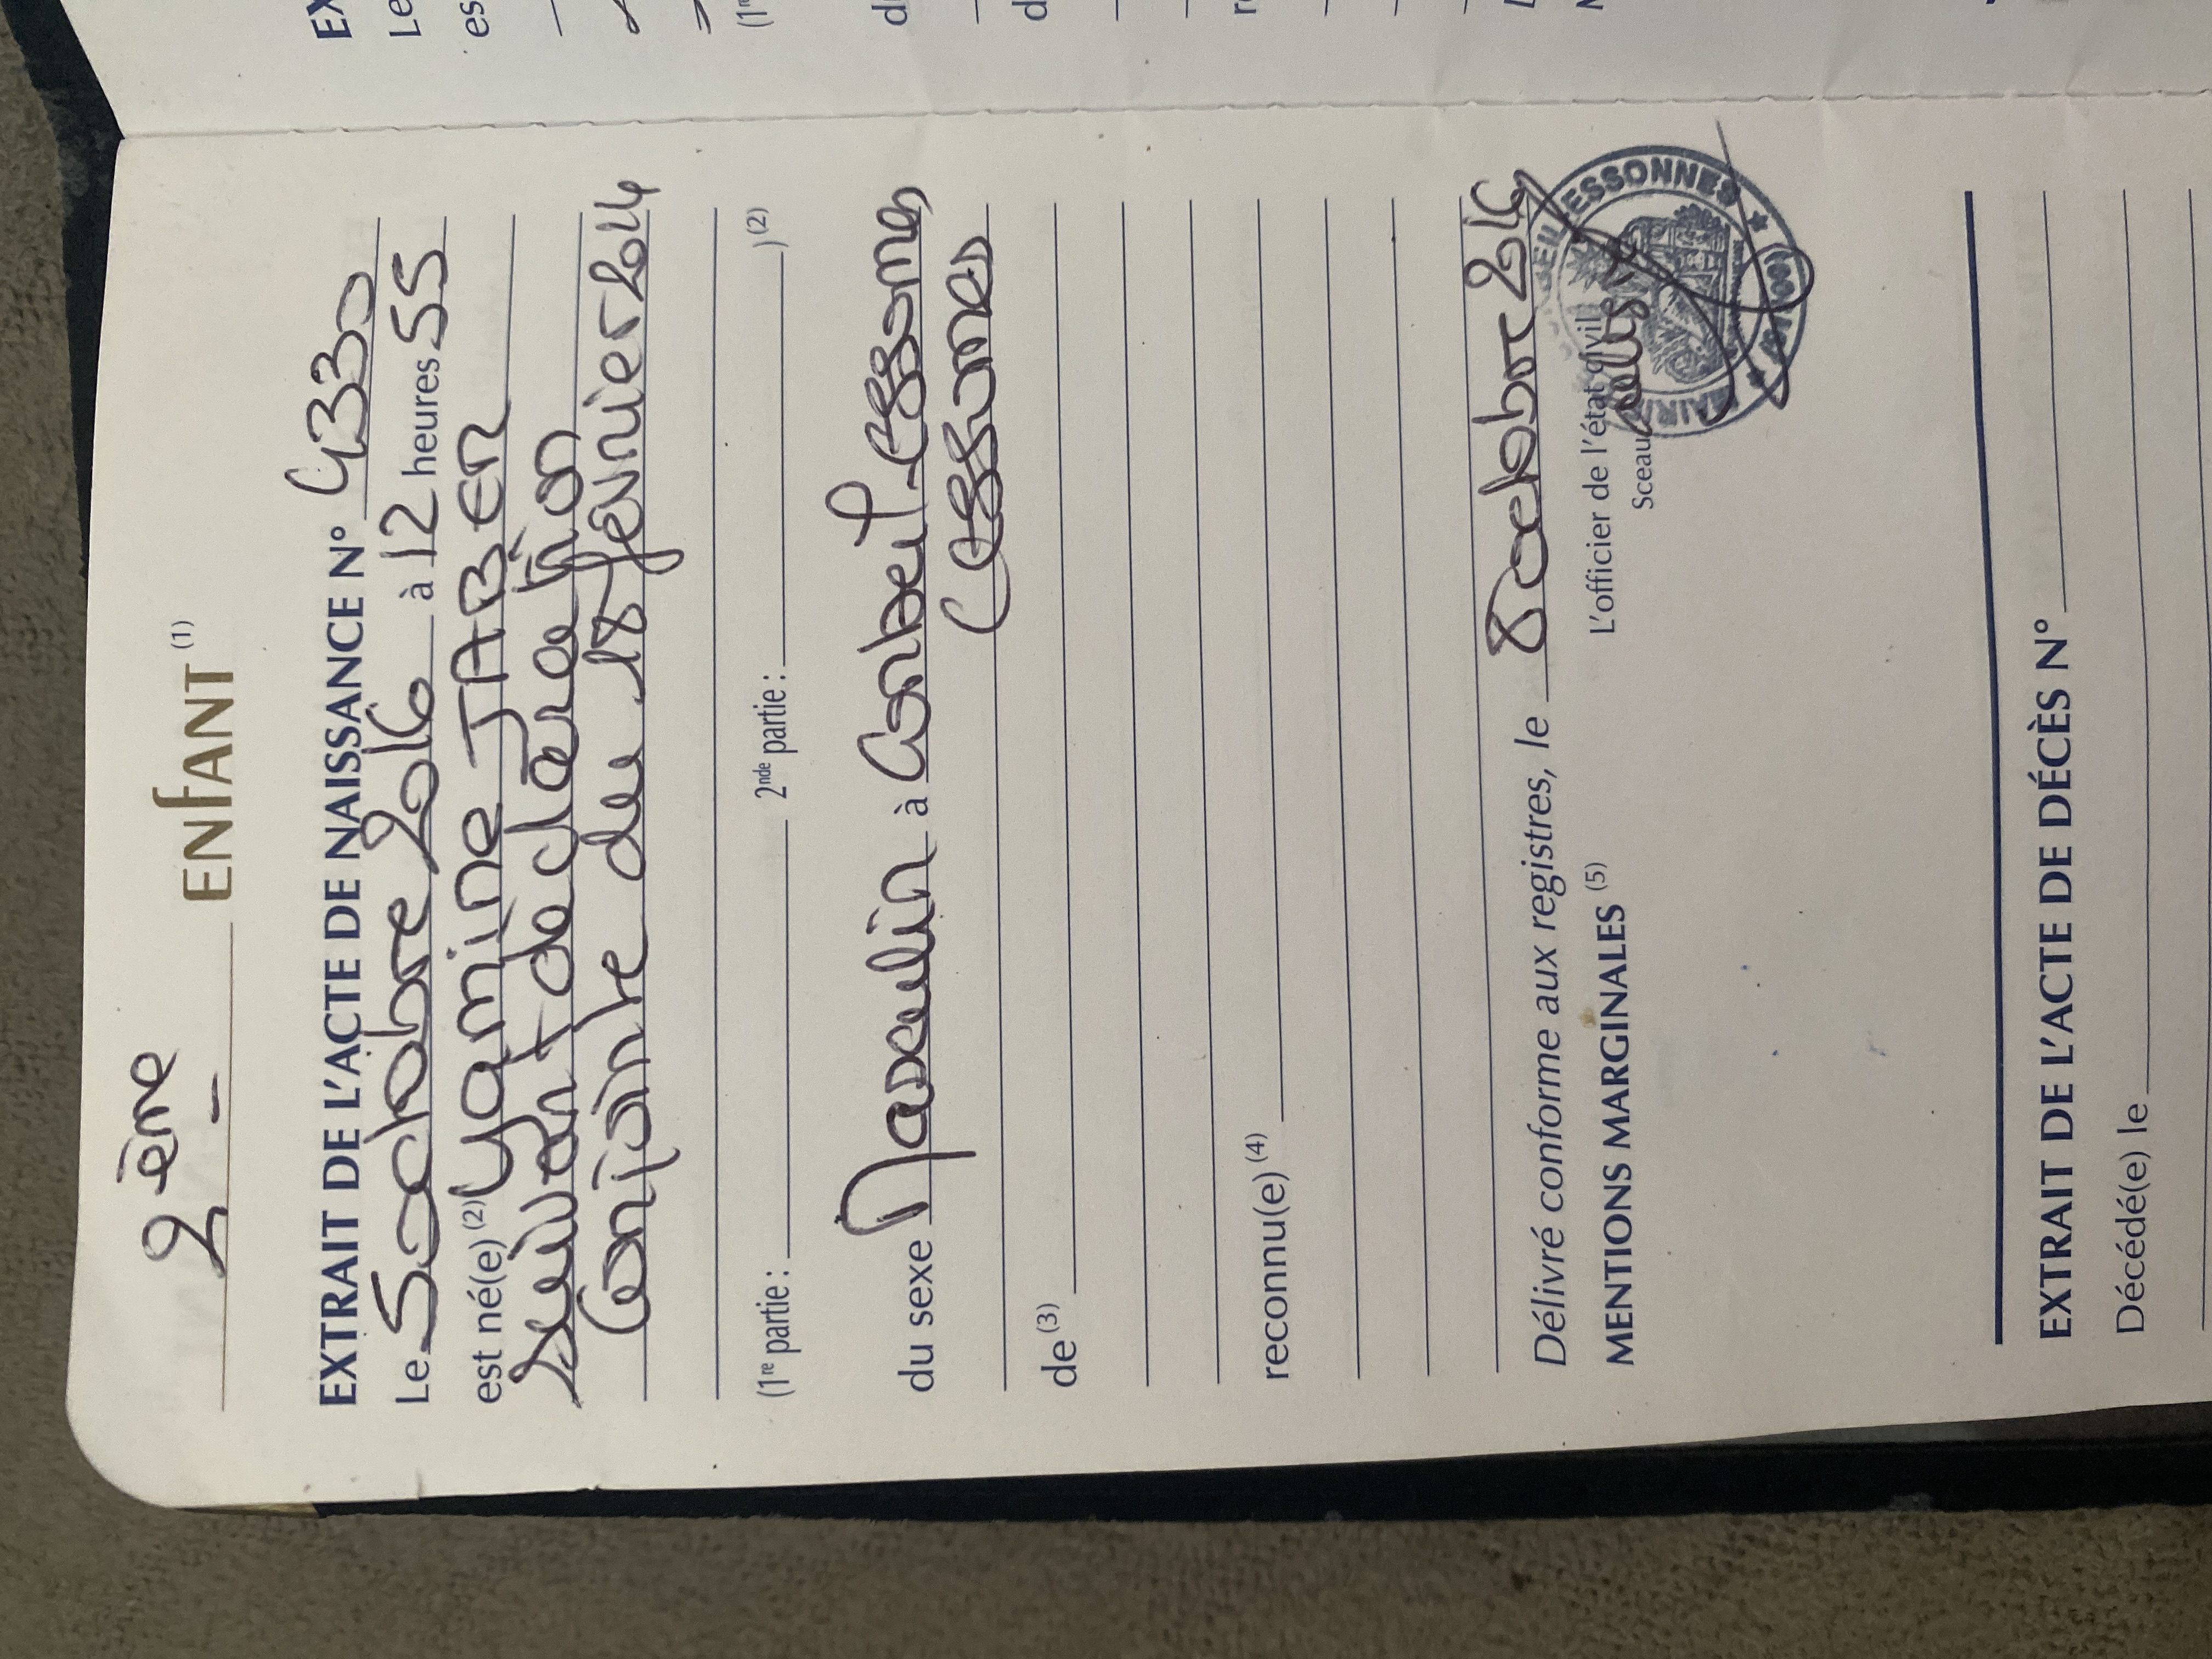 2 ème ENFANT (1)
EXTRAIT DE L'ACTE DE NAISSANCE N° 4330
Le 5 octobre 2016 à 12 heures 55
est né(e) (2) Yamine JABER
suivant déclaration
conjointe du 18 février 2014
(1re partie : 2nde partie : ) (2)
du sexe Masculin à Corbeil-Essonnes
(Essonnes)
de (3)
reconnu(e) (4)
Délivré conforme aux registres, le 8 octobre 2016
L'officier de l'état civil
Sceau
MAIRIE ESSONNES
MENTIONS MARGINALES (5)
EXTRAIT DE L'ACTE DE DÉCÈS N°
Décédé(e) le
EX
Le
es